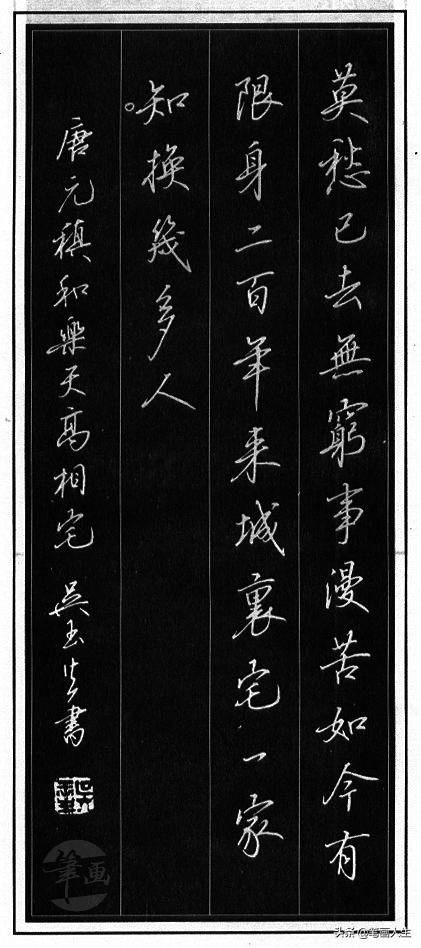 莫愁已去無窮事漫苦如今有
限身二百年来城裏宅一家
知換幾多人
唐元稹和樂天高相宅 吴玉生書
筆画
头条 @笔画人生